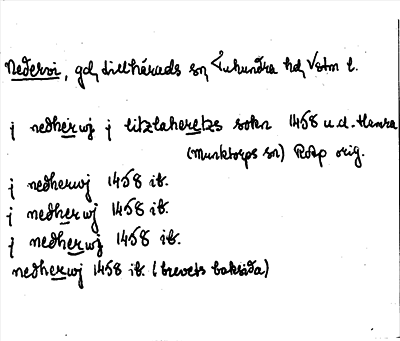 Nedervi, gd, Lillhärads sn, Tuhundra hd, Vstm l.
j nedherwj j litzlaheretzs sokn 1458 u.d. Hamra
(Munktorps sn) RAp orig.
j nedherwj 1458 ib.
j nedherwj 1458 ib.
j nedherwj 1458 ib.
nedherwj 1458 ib. (brevets baksida)